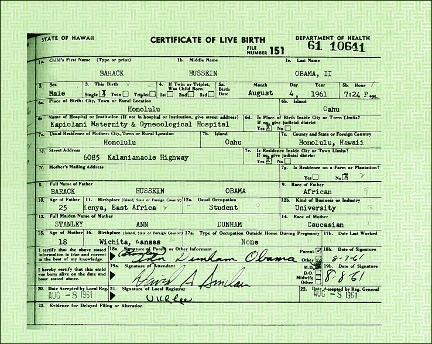 STATE OF HAWAII CERTIFICATE OF LIVE BIRTH DEPARTMENT OF HEALTH
FILE NUMBER 151 61 10641
1a. Child's First Name (Type or print) 1b. Middle Name 1c. Last Name
BARACK HUSSEIN OBAMA, II
2. Sex 3. This Birth 4. If Twin or Triplet, Was Child Born 5a. Birth Date Month Day Year 5b. Hour
Male Single Twin Triplet 1st 2nd 3rd August 4, 1961 7:24 P.
6a. Place of Birth: City, Town or Rural Location 6b. Island
Honolulu Oahu
6c. Name of Hospital or Institution (If not in hospital or institution, give street address) 6d. Is Place of Birth Inside City or Town Limits? If no, give judicial district
Kapiolani Maternity & Gynecological Hospital Yes No
7a. Usual Residence of Mother: City, Town or Rural Location 7b. Island 7c. County and State or Foreign Country
Honolulu Oahu Honolulu, Hawaii
7d. Street Address 7e. Is Residence Inside City or Town Limits? If no, give judicial district
6085 Kalanianaole Highway Yes No
7f. Mother's Mailing Address 7g. Is Residence on a Farm or Plantation?
Yes No
8. Full Name of Father 9. Race of Father
BARACK HUSSEIN OBAMA African
10. Age of Father 11. Birthplace 12a. Usual Occupation 12b. Kind of Business or Industry
25 Kenya, East Africa Student University
13. Full Maiden Name of Mother 14. Race of Mother
STANLEY ANN DUNHAM Caucasian
15. Age of Mother 16. Birthplace 17a. Type of Occupation Outside Home During Pregnancy 17b. Date Last Worked
18 Wichita, Kansas None
I certify that the above stated information is true and correct to the best of my knowledge. 18a. Signature of Parent or Other Informant Parent Other 18b. Date of Signature
Ann Dunham Obama 8-7-61
I hereby certify that this child was born alive on the date and hour stated above. 19a. Signature of Attendant M.D. D.O. Midwife Other 19b. Date of Signature
David A Sinclair 8-8-61
20. Date Accepted by Local Reg. 21. Signature of Local Registrar 22. Date Accepted by Reg. General
AUG -8 1961 AUG -8 1961
23. Evidence for Delayed Filing or Alteration